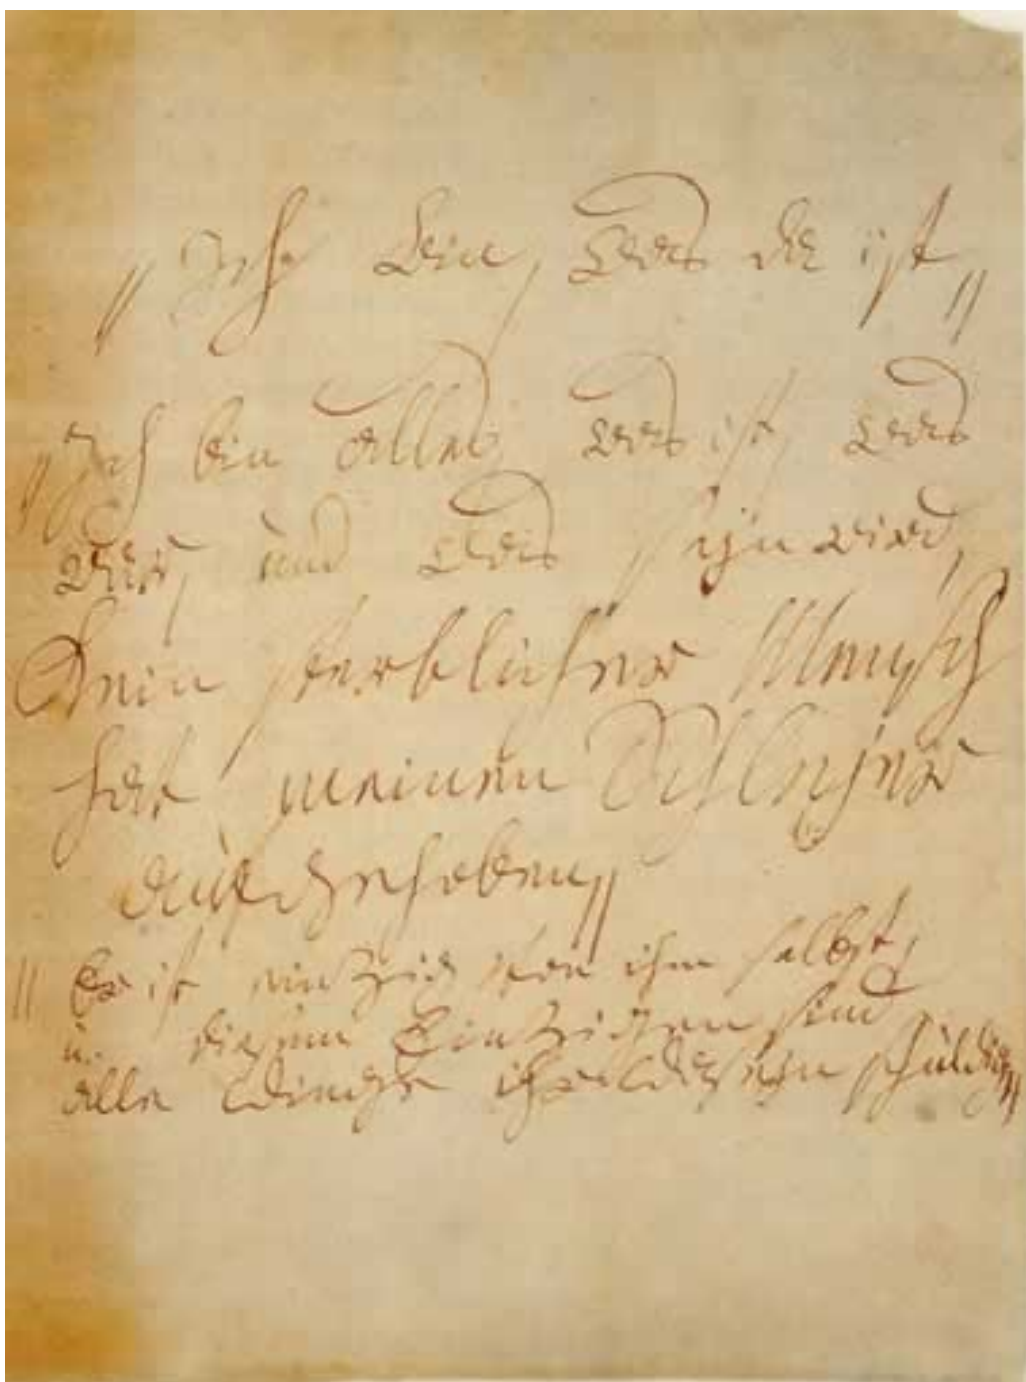 „ Ich bin, was da ist „
„ Ich bin alles, was ist, was
war, und was seyn wird,
Kein sterblicher Mensch
hat meinen Schleyer
aufgehoben „
„ Er ist einzig von ihm selbst,
u. diesem Einzigen sind
alle Dinge ihr Daseyn schuldig „